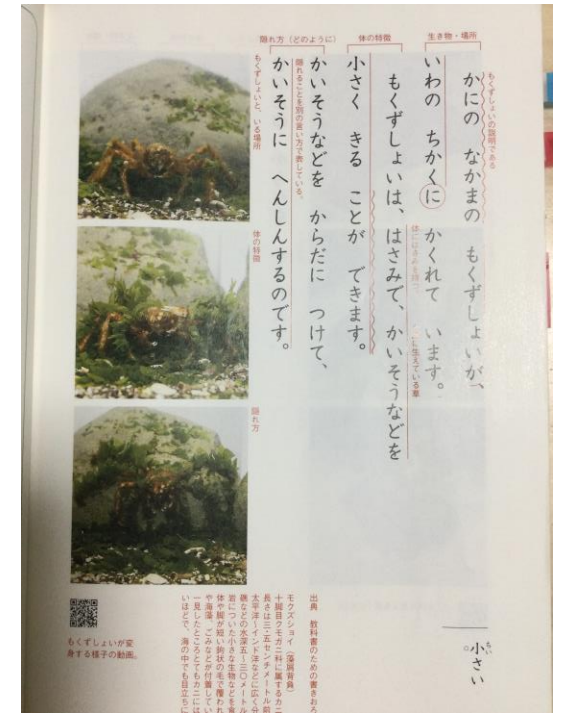 生き物・場所
体の特徴
隠れ方（どのように）
もくずしょいの説明である
かにの なかまの もくずしょいが、
いわの ちかくに かくれて います。
もくずしょいは、はさみで、かいそうなどを
小さく きる ことが できます。
かいそうなどを からだに つけて、
隠れることを別の言い方で表している。
かいそうに へんしんするのです。
もくずしょいと、いる場所
体の特徴
隠れ方
小さい
出典 教科書のための書きおろ
モクズショイ（藻屑背負）
十脚目クモガニ科に属するカニ
長さは三・五センチメートル前
太平洋〜インド洋などに広く分
礁などの水深五〜三〇メートル
岩についた小さな生物などを食
体や脚が短い鉤状の毛で覆われ
や海藻、ごみなどが付着してい
一見したところとてもカニには
いほどで、海の中でも目立ちに
もくずしょいが変
身する様子の動画。